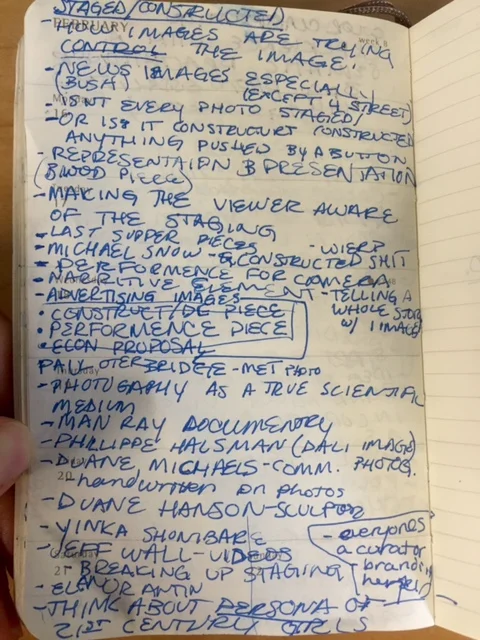 STAGED/CONSTRUCTED
FEBRUARY
HOW IMAGES ARE TRYING
CONTROL THE IMAGE.
- NEWS IMAGES ESPECIALLY
(BUSH) (EXCEPT 4 STREET)
- ISNT EVERY PHOTO STAGED/
- OR IS IT CONSTRUCT CONSTRUCTED
ANYTHING PUSHED BY A BUTTON
- REPRESENTAION PRESENTATION
PIECE)
- MAKING THE VIEWER AWARE
OF THE STAGING
- LAST SUPPER PIECES
- MICHAEL SNOW - WIERD
CONSTRUCTED SHIT
- PERFORMENCE FOR CAMERA
- NARRITIVE ELEMENT - TELLING A
WHOLE STORY
W/ 1 IMAGE
- ADVERTISING IMAGES
• CONSTRUCT/DE PIECE
• PERFORMENCE PIECE
• ECON PROPOSAL
PAUL OTERBRIDEGE - MET PHOTO
- PHOTOGRAPHY AS A TRUE SCIENTIFIC
MEDIUM
- MAN RAY DOCUMENTRY
- PHILIPPE HALSMAN (DALI IMAGE)
- DUANE MICHAELS - COMM. PHOTOG.
handwritten on photos
- DUANE HANSON - SCULPTOR
- YINKA SHONIBARE
- JEFF WALL - VIDEOS
- BREAKING UP STAGING
- everyones
a curator
- branding
herself
- ELANOR ANTIN
- THINK ABOUT PERSONA OF
21ST CENTURY GIRLS